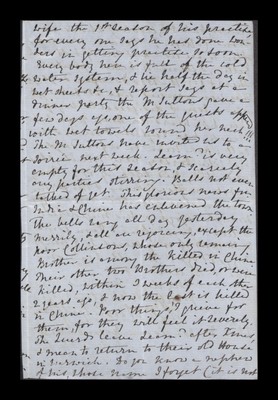 wife the 1st season of his practise
for every one says he has done won-
ders in getting practice so soon.
Every body here is full of the cold
Water system, & lie half the day in
wet sheets &c, & report says at a
dinner party the Mr Suttons gave a
few days ago one of the guests
with wet towels round her neck!!!
The Mr Suttons have invited us to
a Soirée next week. Leam is very
empty for this season & scarcely
any parties stirring. Balls not even
talked of yet. This glorious news from
India & China has enlivened the town
The bells rang all day yesterday
merrily, & all are rejoicing, except the
poor Collinsons, whose only remaing
Brother is among the killed in China
Their other two Brothers died, or were
killed, within 3 weeks of each other
2 years ago, & now the last is killed
in China. Poor things, I grieve for
them, for they will feel it severely.
The Luards leave Leam after Xmas
& mean to return to their old House
in Warwick. Do you know a nephew
of his, whose name I forget (it is not